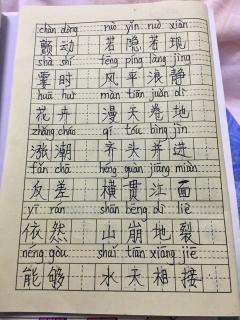 chàn dòng ruò yǐn ruò xiàn
颤动 若隐若现
shà shí fēng píng làng jìng
霎时 风平浪静
huā huì màn tiān juǎn dì
花卉 漫天卷地
zhǎng cháo qí tóu bìng jìn
涨潮 齐头并进
fǎn chā héng guàn jiāng miàn
反差 横贯江面
yī rán shān bēng dì liè
依然 山崩地裂
néng gòu shuǐ tiān xiāng jiē
能够 水天相接